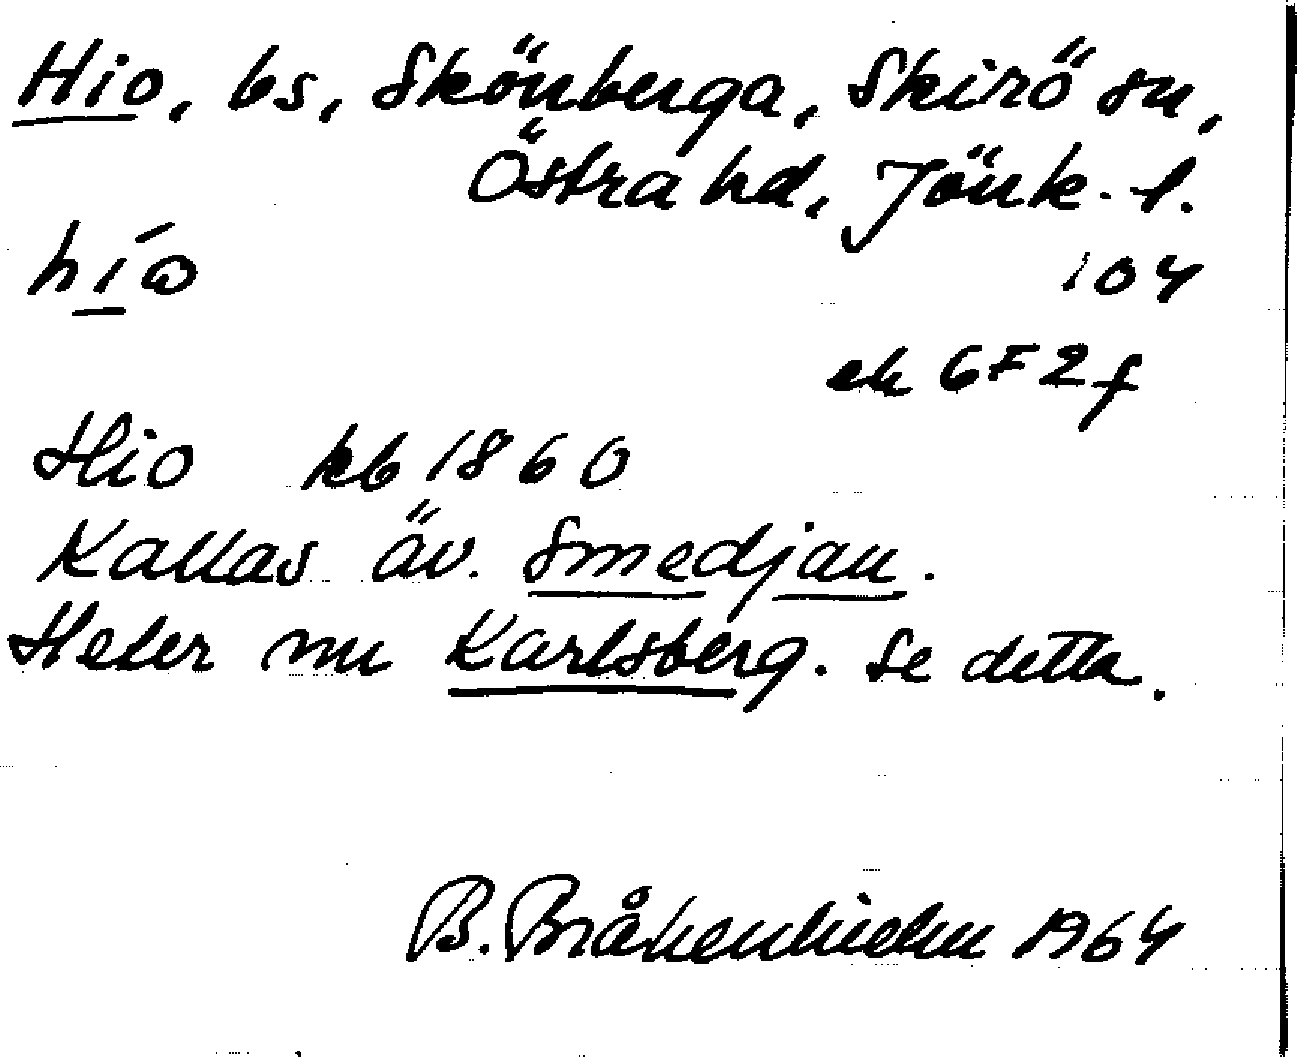 Hio, bs, Skönberga, Skirö sn,
Östra hd, Jönk. l.
hío
104
ek 6F2f
Hio kb 1860
Kallas äv. Smedjan.
Heter nu Karlsberg. Se detta.
B. Bråkenhielm 1964